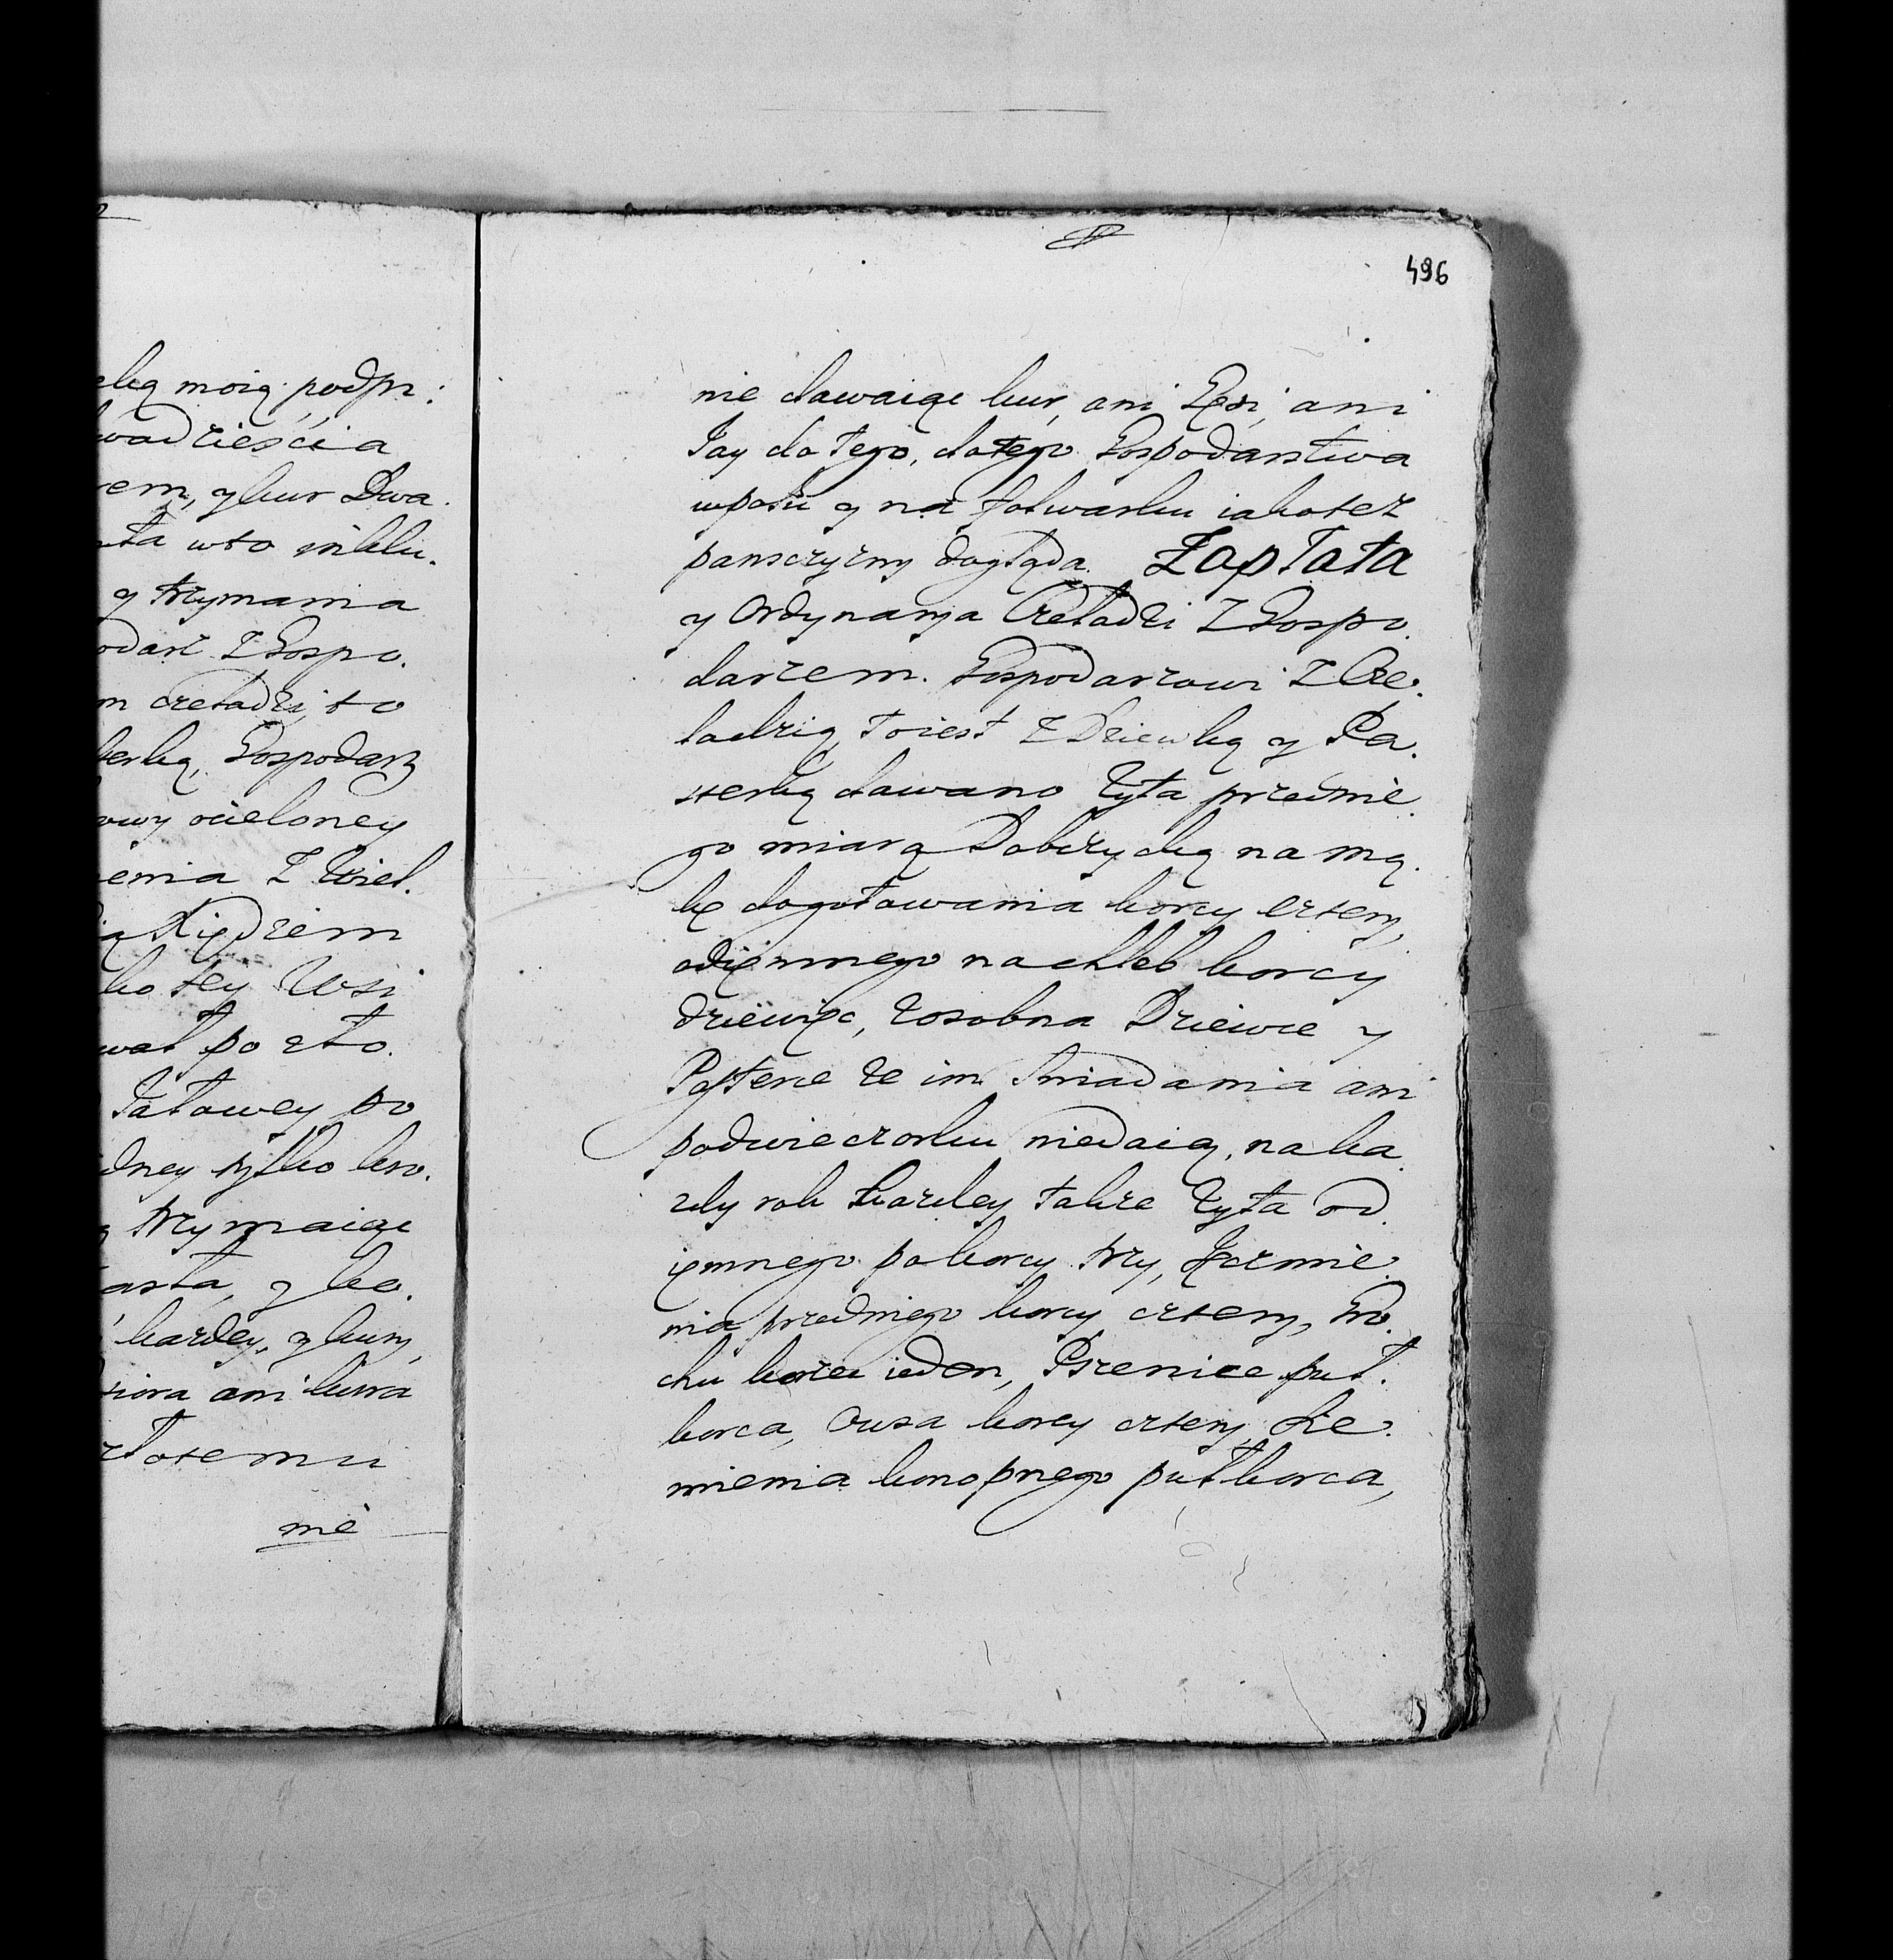 elką moią podpr:
wadzieścia
rem, y kur Dwa.
ęta w to inklu.
y trzymania
odarz Z Gospo.
m czeladzi, to
terką, Gospodarz
owy ocieloney
ienia Z Wiel.
ią Xiędzem
ko tey Wsi
wał po zło.
Jałowey po
dney tylko kro.
trzymaiąc
asta, y ko.
kazdey, y kury,
siora ani kura
złotemu
nie
496
nie dawaiąc kur, ani Gęsi, ani
Jay do tego, do tego Gospodarstwa
w polu y na folwarku iako też
panszczyzny dogląda. Zapłata
y Ordynarya Czeladzi Z Gospo.
darzem. Gospodarzowi Z Cze.
ladzią, to iest Z Dziewką y Pa.
sterką dawano Zyta przednie.
go miarą Dobrzycką na mą.
kę do gotowania korcy cztery,
odięmnego na chleb korcy
dziewięc, zosobna Dziewce y
Pasterce ze im sniadania ani
podwieczorku niedaią, na ka.
zdy rok kazdey także Zyta od.
ięmnego po korcy trzy, Jęczmie.
nia przedniego korcy cztery, Gro.
chu korzec ieden, Pszenice puł.
korca, Owsa korcy cztery, Sie.
mienia konopnego puł korca,